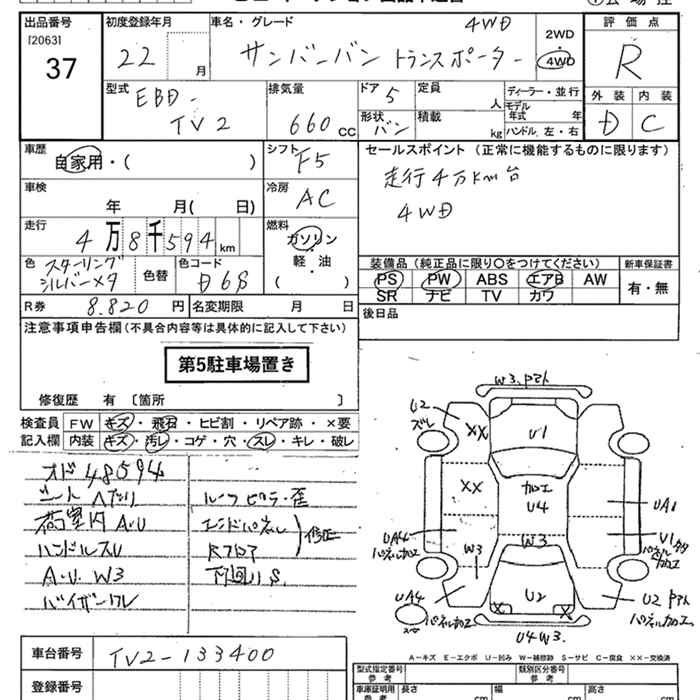 出品番号
[2063]
37
初度登録年月
22
月
車名・グレード
4WD
サンバーバン トランスポーター
2WD
4WD
評価点
R
外装 内装
D C
型式
EBD-
TV2
排気量
660 CC
ドア
5
形状
バン
定員
人
積載
kg
ディーラー・並行
モデル年式 年
ハンドル 左・右
車歴
自家用・( )
シフト
F5
セールスポイント (正常に機能するものに限ります)
走行4万km台
4WD
車検
年 月( 日)
冷房
AC
走行
4万8千594km
燃料
ガソリン
軽・油
( )
色
スターリング
シルバーメタ
色替
色コード
D6S
装備品 (純正品に限り○をつけてください)
PS PW ABS エアB AW
SR ナビ TV カワ
新車保証書
有・無
R券
8.820 円
名変期限 月 日
後日品
注意事項申告欄 (不具合内容等は具体的に記入して下さい)
第5駐車場置き
修復歴 有 〔箇所 〕
検査員
記入欄
FW キズ・飛石・ヒビ割・リペア跡・×要
内装 キズ・汚レ・コゲ・穴・スレ・キレ・破レ
オド48594
シートヘタリ
荷室内A・U
ハンドルスU
A・U W3
バイザーワレ
ルーフピラー歪
エンドパネル
Rフロア
修正
下回りS
W3.アト
U2
ズレ
XX
U1
XX
加工
U4
UA1
UA4
パネル加工
W3
W3
U1
加工
UA4
パネル加工
U2
X
X
U4W3.
U2
パネル加工
A-キズ E-エクボ U-凹み W-補修跡 S-サビ C-腐食 XX-交換済
車台番号
TV2-133400
登録番号
型式指定番号
参考
類別区分番号
参考
車庫証明用
参考
長さ
cm
幅
cm
高さ
cm